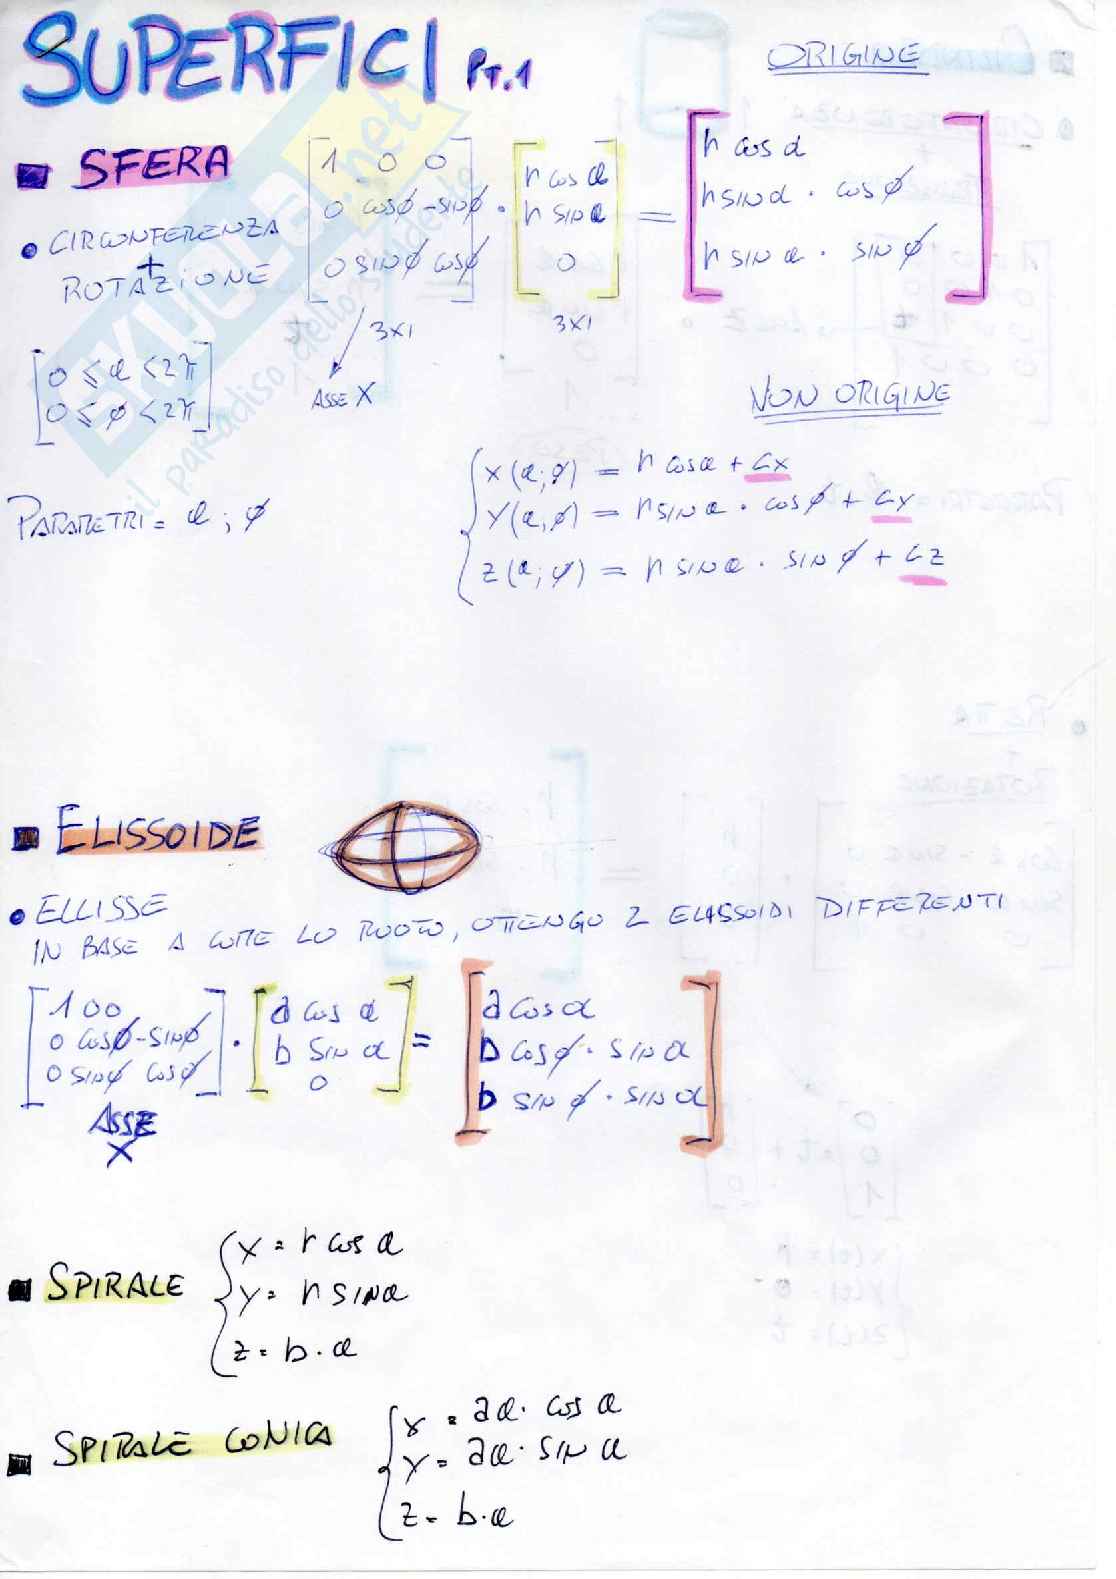 SUPERFICI PT.1
ORIGINE
SFERA
CIRCONFERENZA
+
ROTAZIONE
[1 0 0
0 cosϕ -sinϕ
0 sinϕ cosϕ]
·
[r cos α
r sin α
0]
=
[r cos α
r sin α · cos ϕ
r sin α · sin ϕ]
3x1
3x1
ASSE X
[0 ≤ α < 2π
0 ≤ ϕ < 2π]
PARAMETRI = α ; ϕ
NON ORIGINE
{x(α;ϕ) = r cos α + Cx
y(α,ϕ) = r sin α · cos ϕ + Cy
z(α;ϕ) = r sin α · sin ϕ + Cz
SKUOLA.net
il paradiso dello studente
ELISSOIDE
ELLISSE
IN BASE A COME LO RUOTO, OTTENGO 2 ELISSOIDI DIFFERENTI
[1 0 0
0 cosϕ -sinϕ
0 sinϕ cosϕ]
·
[a cos α
b sin α
0]
=
[a cos α
b cos ϕ · sin α
b sin ϕ · sin α]
ASSE
X
SPIRALE
{x = r cos α
y = r sin α
z = b · α
SPIRALE CONICA
{x = aα · cos α
y = aα · sin α
z = b · α